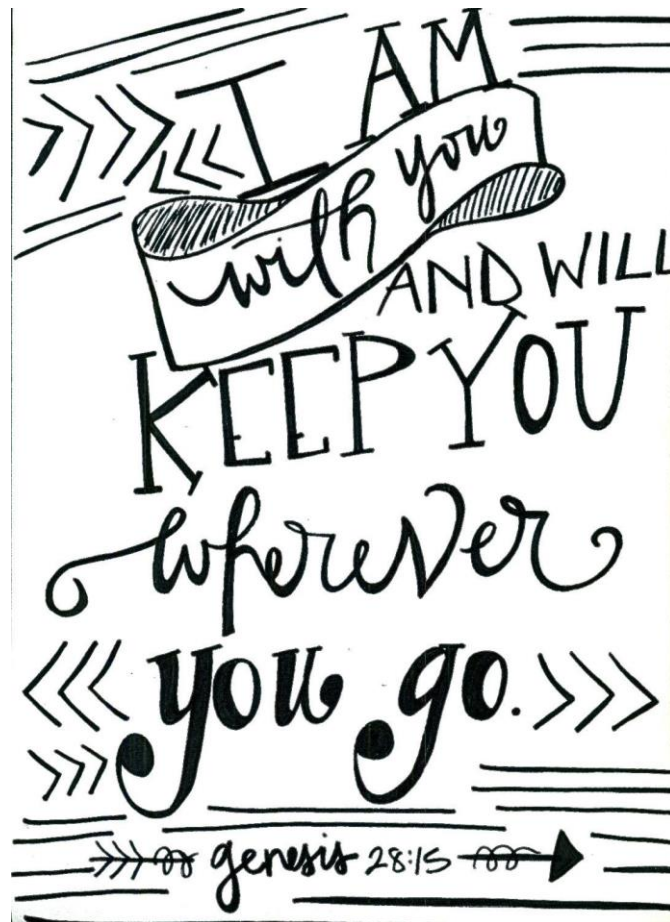 I AM
with you
AND WILL
KEEP YOU
wherever
you go.
genesis 28:15